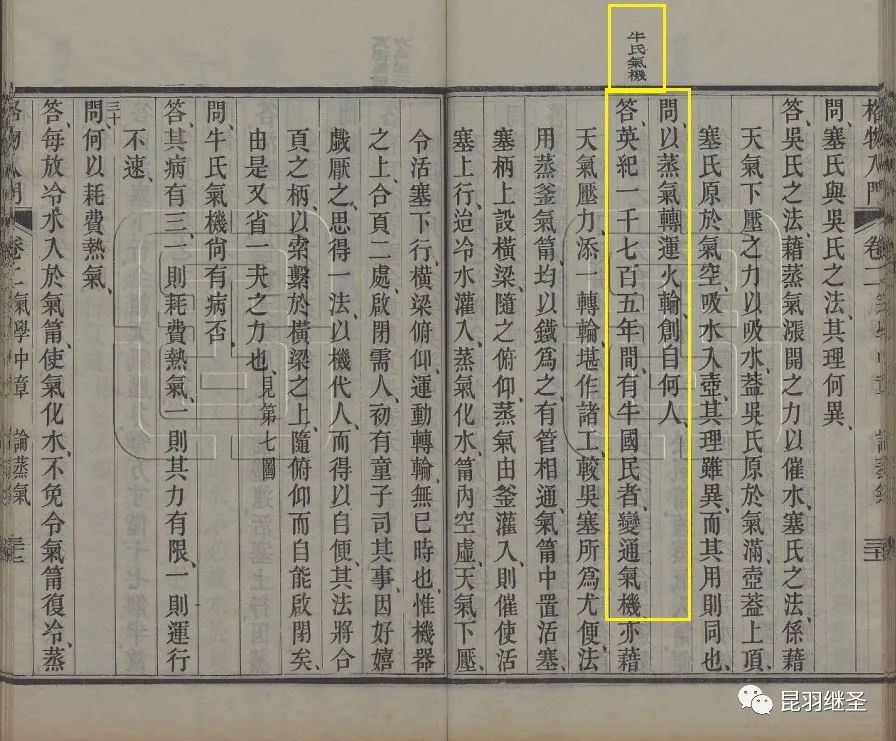 牛氏氣機
格物入門 卷二
問、塞氏與吳氏之法、其理何異、
答、吳氏之法、藉蒸氣漲開之力以催水、塞氏之法、係藉
天氣下壓之力以吸水、蓋吳氏原於氣滿壺蓋上頂、
塞氏原於氣空、吸水入壺、其理雖異、而其用則同也、
問、以蒸氣轉運火輪、創自何人、
答、英紀一千七百五年間、有牛國民者、變通氣機、亦藉
天氣壓力、添一轉輪、堪作諸工、較吳塞所爲尤便、法
用蒸釜氣筩、均以鐵爲之、有管相通、氣筩中置活塞、
塞柄上設橫梁、隨之俯仰、蒸氣由釜灌入、則催使活
塞上行、迨冷水灌入、蒸氣化水、筩內空虛、天氣下壓、
令活塞下行、橫梁俯仰、運動轉輪、無已時也、惟機器
之上、合頁二處、啟閉需人、初有童子司其事、因好嬉
戲厭之、思得一法、以機代人、而得以自便、其法將合
頁之柄、以索繫於橫梁之上、隨俯仰而自能啟閉矣、
由是又省一夫之力也、見第七圖
問、牛氏氣機尙有病否、
答、其病有三、一則耗費熱氣、一則其力有限、一則運行
不速、
三十
問、何以耗費熱氣、
答、每放冷水入於氣筩、使氣化水、不免令氣筩復冷、蒸
格物入門 卷二 氣學中章 論蒸氣
昆羽继圣